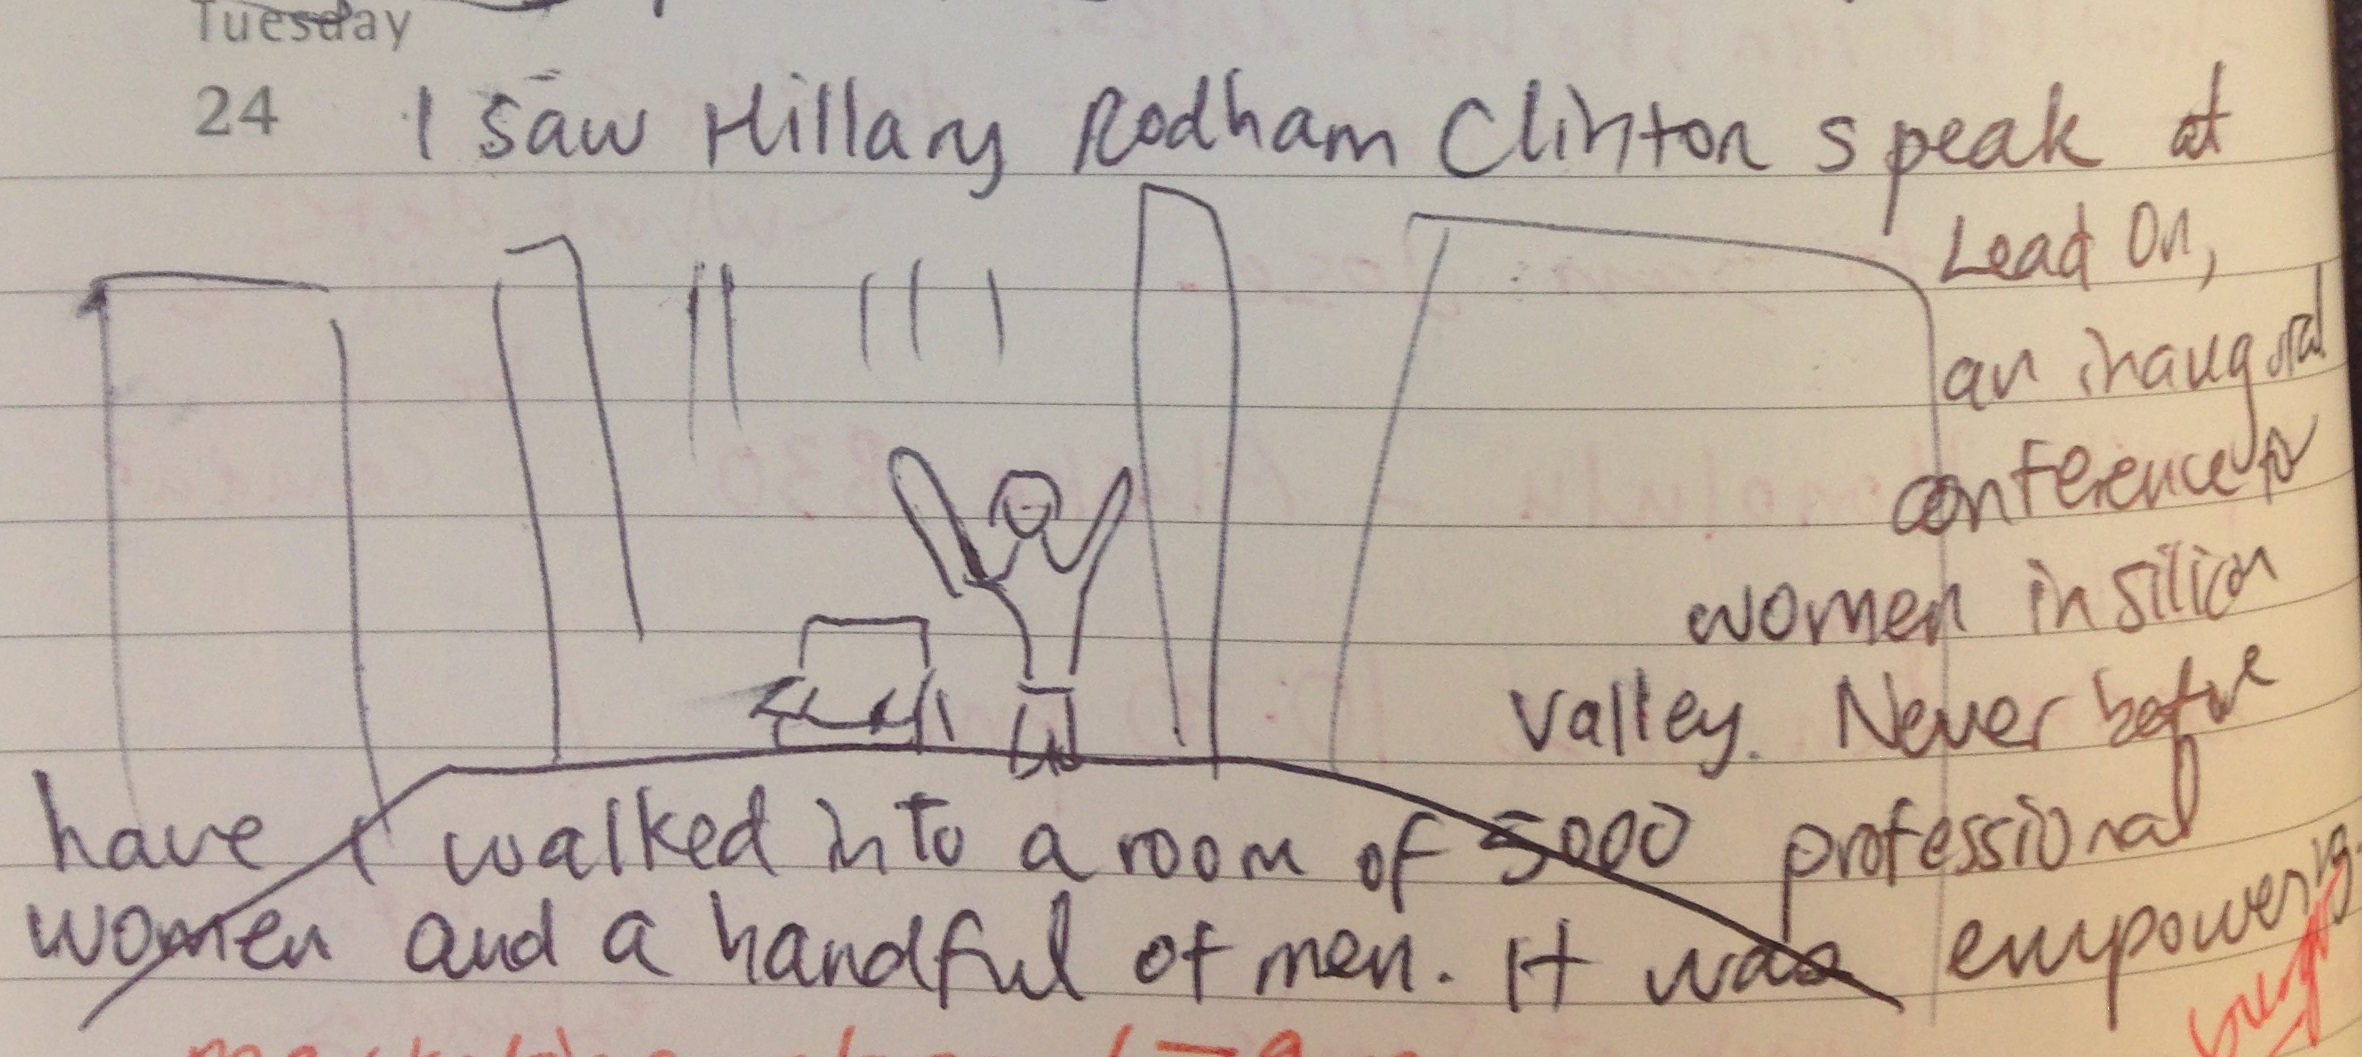 Tuesday
24 I saw Hillary Rodham Clinton speak at
Lead On,
an inaugural
conference for
women in silicon
valley. Never before
have I walked into a room of 5000 professional
women and a handful of men. It was empowering.